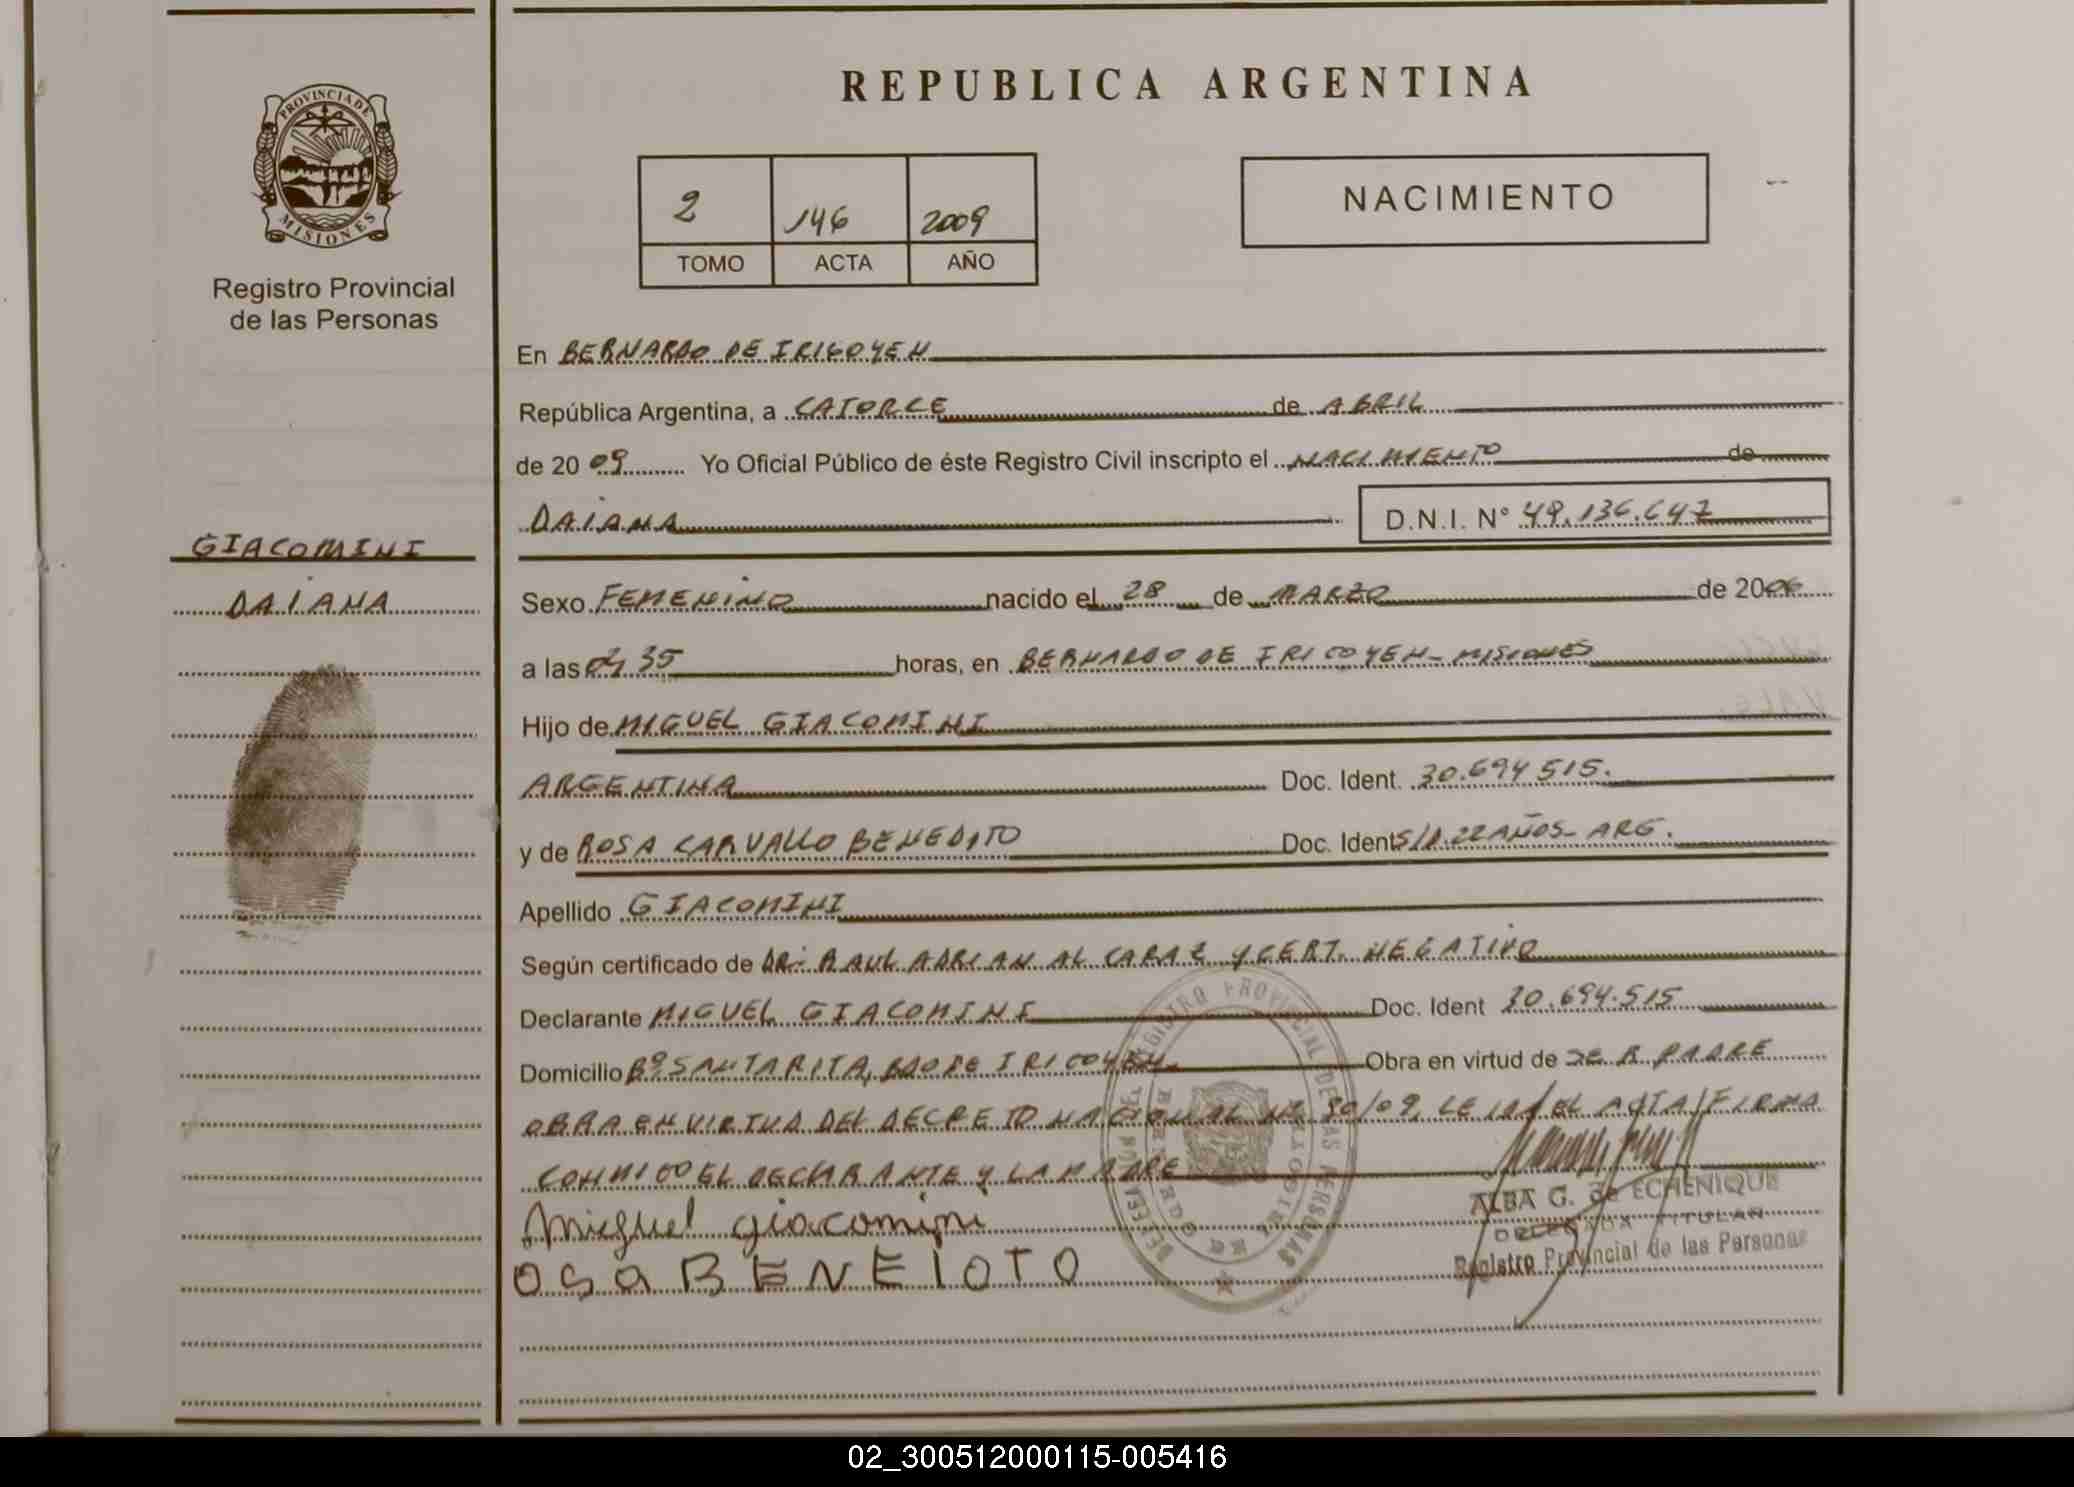 PROVINCIA DE
MISIONES
Registro Provincial
de las Personas
GIACOMINI
DAIANA
REPUBLICA ARGENTINA
2 146 2009
TOMO ACTA AÑO
NACIMIENTO
En BERNARDO DE IRIGOYEN
República Argentina, a CATORCE de ABRIL
de 20 09 Yo Oficial Público de éste Registro Civil inscripto el NACIMIENTO de
DAIANA D.N.I. N° 49.136.647
Sexo FEMENINO nacido el 28 de MARZO de 2006
a las 35 horas, en BERNARDO DE IRIGOYEN - MISIONES
Hijo de MIGUEL GIACOMINI
ARGENTINA Doc. Ident. 30.694.515.
y de ROSA CARVALLO BENEDITO Doc. Ident S/D. 22 AÑOS - ARG.
Apellido GIACOMINI
Según certificado de DR. RAUL ADRIAN ALCARAZ Y CERT. NEGATIVO
Declarante MIGUEL GIACOMINI Doc. Ident 30.694.515
Domicilio Bº SANTA RITA, BDO DE IRIGOYEN. Obra en virtud de SER PADRE
OBRA EN VIRTUD DEL DECRETO NACIONAL Nº 90/09. LEIDA EL ACTA, FIRMA
CONMIGO EL DECLARANTE Y LA MADRE
Miguel giacomini
OSA BENEIOTO
REGISTRO PROVINCIAL DE LAS PERSONAS
BERNARDO DE IRIGOYEN
ALBA G. de ECHENIQUE
DELEGADA TITULAR
Registro Provincial de las Personas
02_300512000115-005416